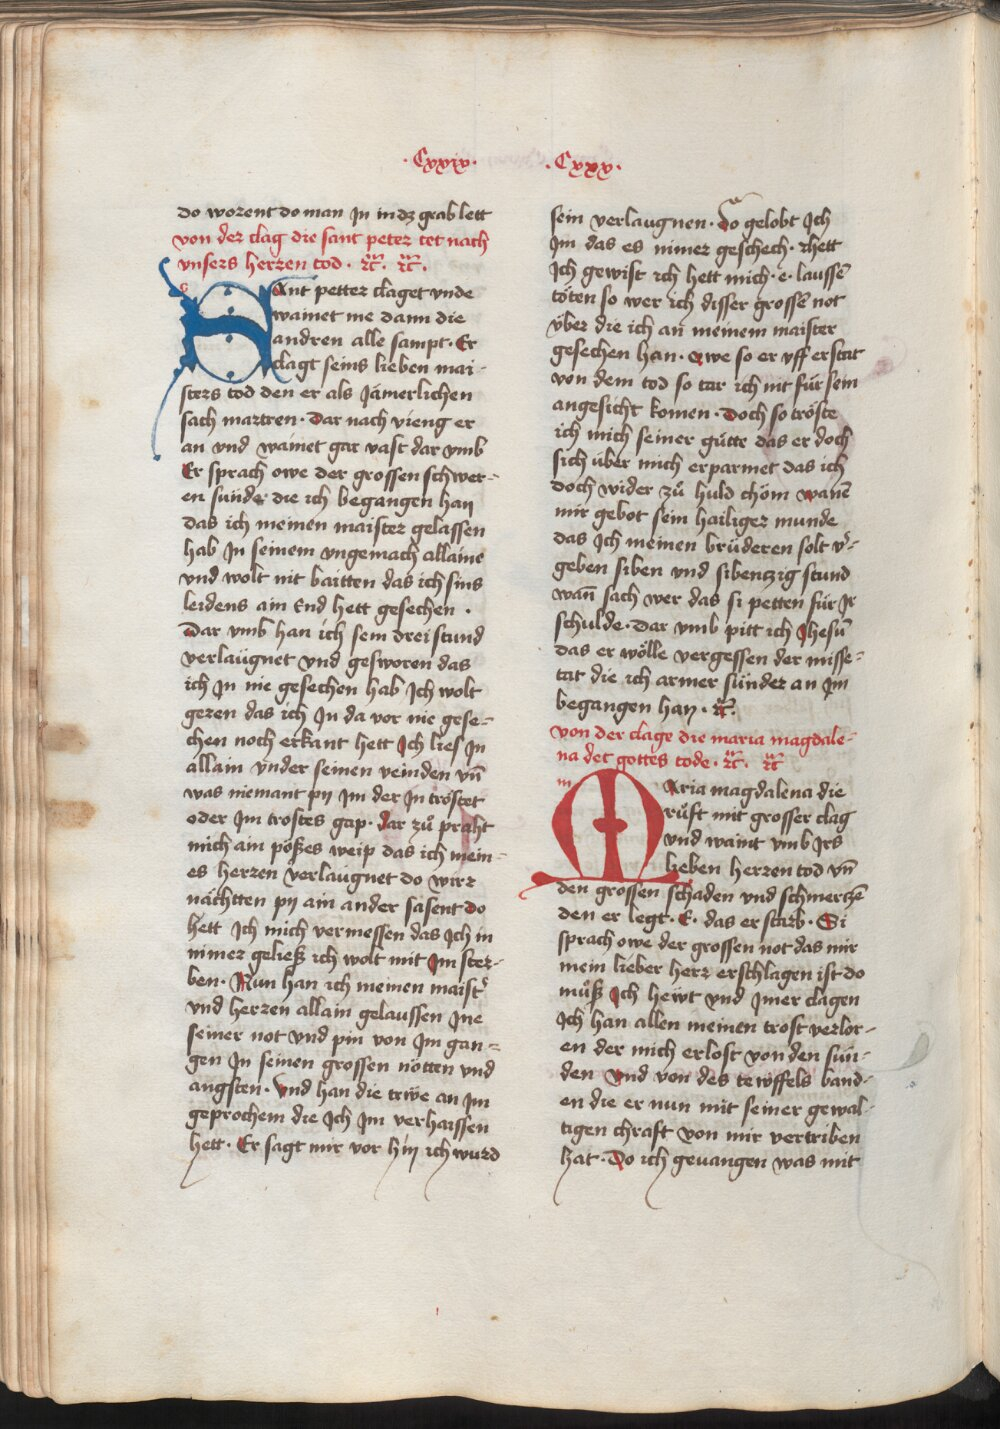 · Cxxix ·
do worent do man jn in dz grab lett
von der clag die sant peter tet nach
vnsers herren tod · ꝛc̃ · ꝛc̃ ·
s
SAnt petter claget vnde
wainet me dann die
andren alle sampt · Er
clagt seins lieben mai-
sters tod den er als Jämerlichen
sach martren · Dar nach vieng er
an vnd wainet gar vast dar vmb
Er sprach owe der grossen schwer-
en sünder die ich begangen han
das ich meinen maister gelassen
hab Jn seinem vngemach allaine
vnd wolt nit baitten das ich sins
leidens ain End hett gesechen ·
Dar vmb han ich sein drei stund
verlaügnet vnd gesworen das
ich Jn nie gesechen hab Ich wolt
geren das ich Jn da vor nie gese-
chen noch erkant hett Ich lies Jn
allain vnder seinen veinden vn̄
was niemant pÿ Jm der Jn tröstet
oder Jm trostes gap · dar zů praht
mich ain pößes weip das ich mein-
es herren verlaügnet do wirr
nächtten pÿ ain ander sasent do
hett Ich mich vermessen das Ich in
nimer geließ ich wolt mit Jm ster-
ben · Nun han ich meinen maist͛
vnd herren allain gelaussen Jne
seiner not vnd pin von Jm gan-
gen Jn seinen grossen nötten vnd
angsten · Vnd han die trẅe an Jm
geprochem die Ich Jm verhaissen
hett · Er sagt mir vor hin ich wurd
· Cxxx ·
sein verlaugnen · Do gelobt Ich
Jm das es nimer geschech · rhett
Ich gewist ich hett mich · e · laussē
töten so wer ich disser grossē not
v̈ber die ich an meinem maister
gesechen han · Owe so er vff erstat
von dem tod so tar ich nit für sein
angesicht komen · Doch so tröste
ich mich seiner gütte das er doch
sich über mich erparmet das ich
doch wider zů huld chöm wanē
mir gebot sein hailiger munde
das Ich meinen brüderen solt v͛-
geben siben vnd sibentzig stund
wan̄ sach wer das si petten für Jr
schulde · Dar vmb pitt ich Jhesū
das er wölle vergessen der misse-
tat die ich armer sünder an Jm
begangen han · ꝛc̃ ·
von der clage die maria magdale-
na det gottes tode · ꝛc̃ · ꝛc̃
m
MAria magdalena die
růft mit grosser clag
vnd waint vmb Jrs
lieben herren tod vn̄
den grossen schaden vnd schmerczē
den er legt · E · das er starb · Si
sprach owe der grossen not das mir
mein lieber herr erschlagen ist do
můß Ich heẅt vnd Jmer clagen
Ich han allen meinen trost verlor-
en der mich erlost von den sün-
den vnd von des teẅffels band-
en die er nun mit seiner gewal-
tigen chraft von mir vertriben
hat · Do ich geuangen was mit